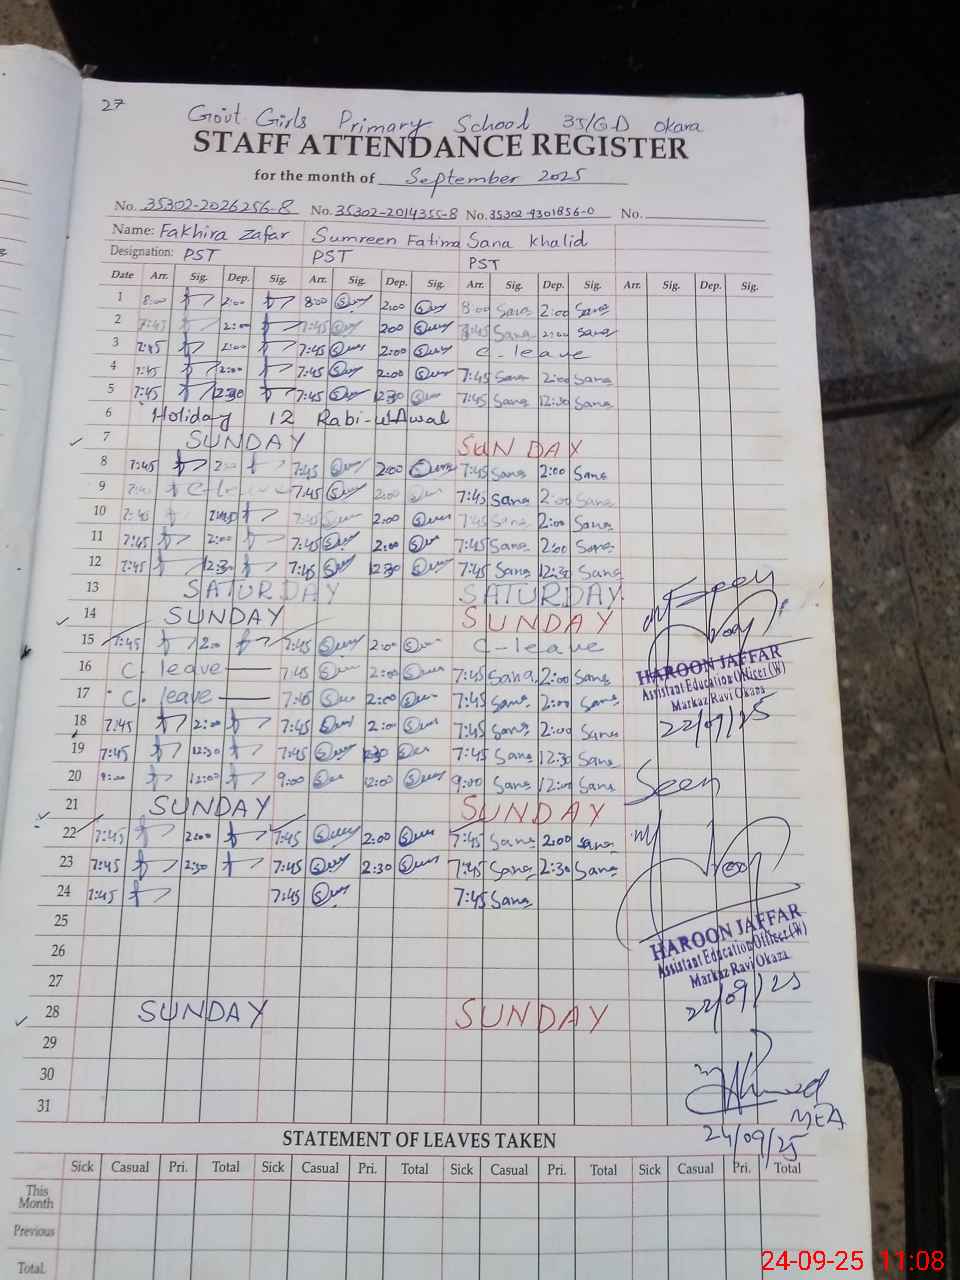 27
Govt Girls Primary School 35/GD Okara
STAFF ATTENDANCE REGISTER
for the month of September 2025
No. 35302-2026256-8 No. 35302-2014355-8 No. 35302-4301856-0 No.
Name: Fakhira Zafar Sumreen Fatima Sana Khalid
Designation: PST PST PST
Date Arr. Sig. Dep. Sig. Arr. Sig. Dep. Sig. Arr. Sig. Dep. Sig. Arr. Sig. Dep. Sig.
1 8:00 2:00 8:00 2:00 8:00 Sana 2:00 Sana
2 7:45 2:00 7:45 2:00 Sana 2:00 Sana
3 7:45 2:00 7:45 2:00 C-leave
4 7:45 2:00 7:45 2:00 7:45 Sana 2:00 Sana
5 7:45 12:30 7:45 12:30 7:45 Sana 12:30 Sana
6 Holiday 12 Rabi-ul-Awal
7 SUNDAY SUNDAY
8 7:45 2:00 7:45 2:00 7:45 Sana 2:00 Sana
9 7:45 7:45 2:00 7:45 Sana 2:00 Sana
10 7:45 7:45 2:00 7:45 Sana 2:00 Sana
11 7:45 2:00 7:45 2:00 7:45 Sana 2:00 Sana
12 7:45 12:30 7:45 12:30 7:45 Sana 12:30 Sana
13 SATURDAY SATURDAY
14 SUNDAY SUNDAY
15 7:45 2:00 7:45 2:00 C-leave
16 C. leave 7:45 2:00 7:45 Sana 2:00 Sana
17 C. leave 7:45 2:00 7:45 Sana 2:00 Sana
18 7:45 2:00 7:45 2:00 7:45 Sana 2:00 Sana
19 7:45 12:30 7:45 12:30 7:45 Sana 12:30 Sana
20 9:00 12:00 9:00 12:00 9:00 Sana 12:00 Sana
21 SUNDAY SUNDAY
22 7:45 2:00 7:45 2:00 7:45 Sana 2:00 Sana
23 7:45 2:30 7:45 2:30 7:45 Sana 2:30 Sana
24 7:45 7:45 7:45 Sana
25
26
27
28 SUNDAY SUNDAY
29
30
31
Seen
HAROON JAFFAR
Assistant Education Officer (W)
Markaz Ravi Okara
22/09/25
Seen
HAROON JAFFAR
Assistant Education Officer (W)
Markaz Ravi Okara
22/09/25
MEA
24/09/25
STATEMENT OF LEAVES TAKEN
Sick Casual Pri. Total Sick Casual Pri. Total Sick Casual Pri. Total Sick Casual Pri. Total
This Month
Previous
Total.
24-09-25 11:08